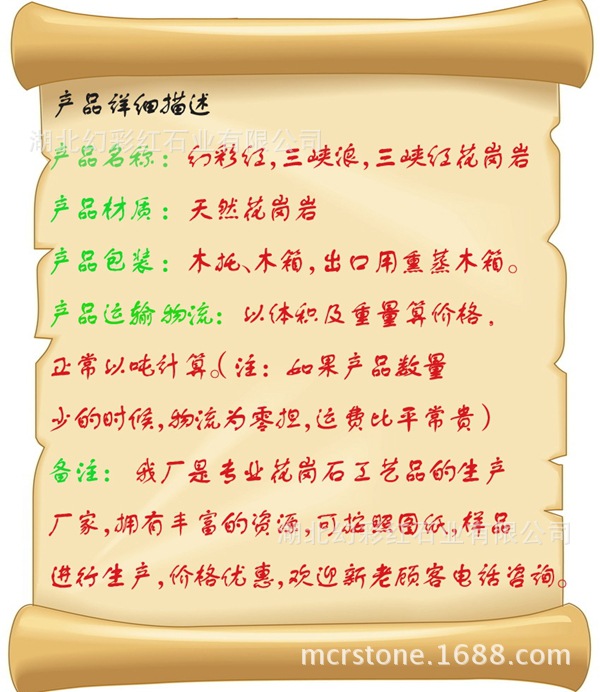 产品详细描述
湖北幻彩红石业有限公司
产品名称：幻彩红,三峡浪,三峡红花岗岩
产品材质：天然花岗岩
产品包装：木托、木箱,出口用熏蒸木箱。
产品运输物流：以体积及重量算价格,
正常以吨计算。(注：如果产品数量
少的时候,物流为零担,运费比平常贵)
备注：我厂是专业花岗石工艺品的生产
厂家,拥有丰富的资源,可按照图纸,样品
湖北幻彩红石业有限公司
进行生产,价格优惠,欢迎新老顾客电话咨询。
mcrstone.1688.com